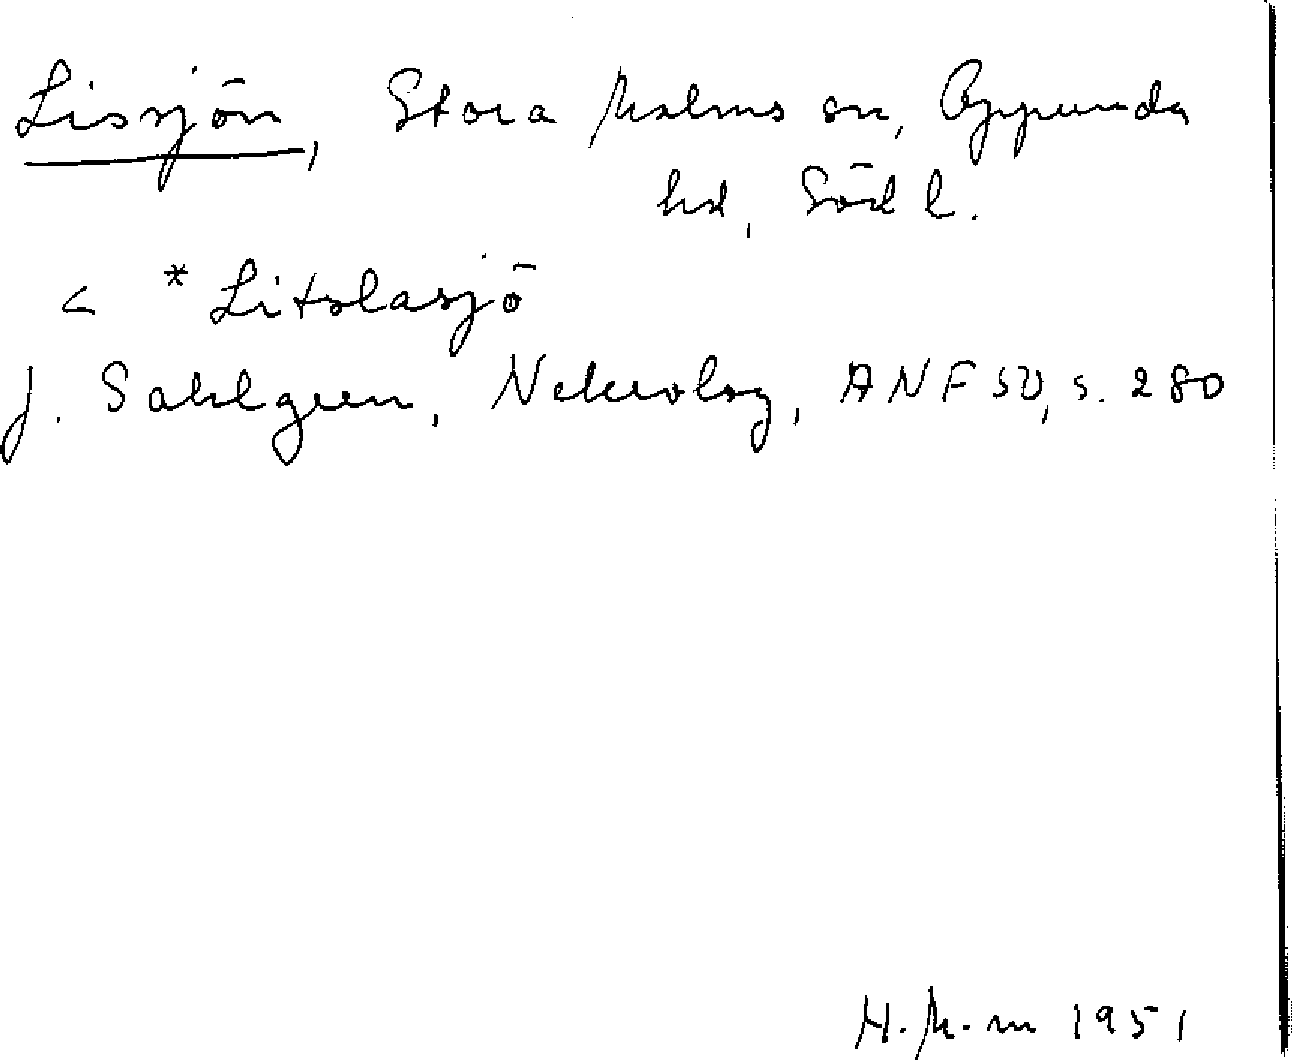 Lissjön, Stora Malms sn, Oppunda
hd, Södl.
< *Litslasjö
J. Sahlgren, Nekrolog, ANF 50, s. 280
H. M-m 1951